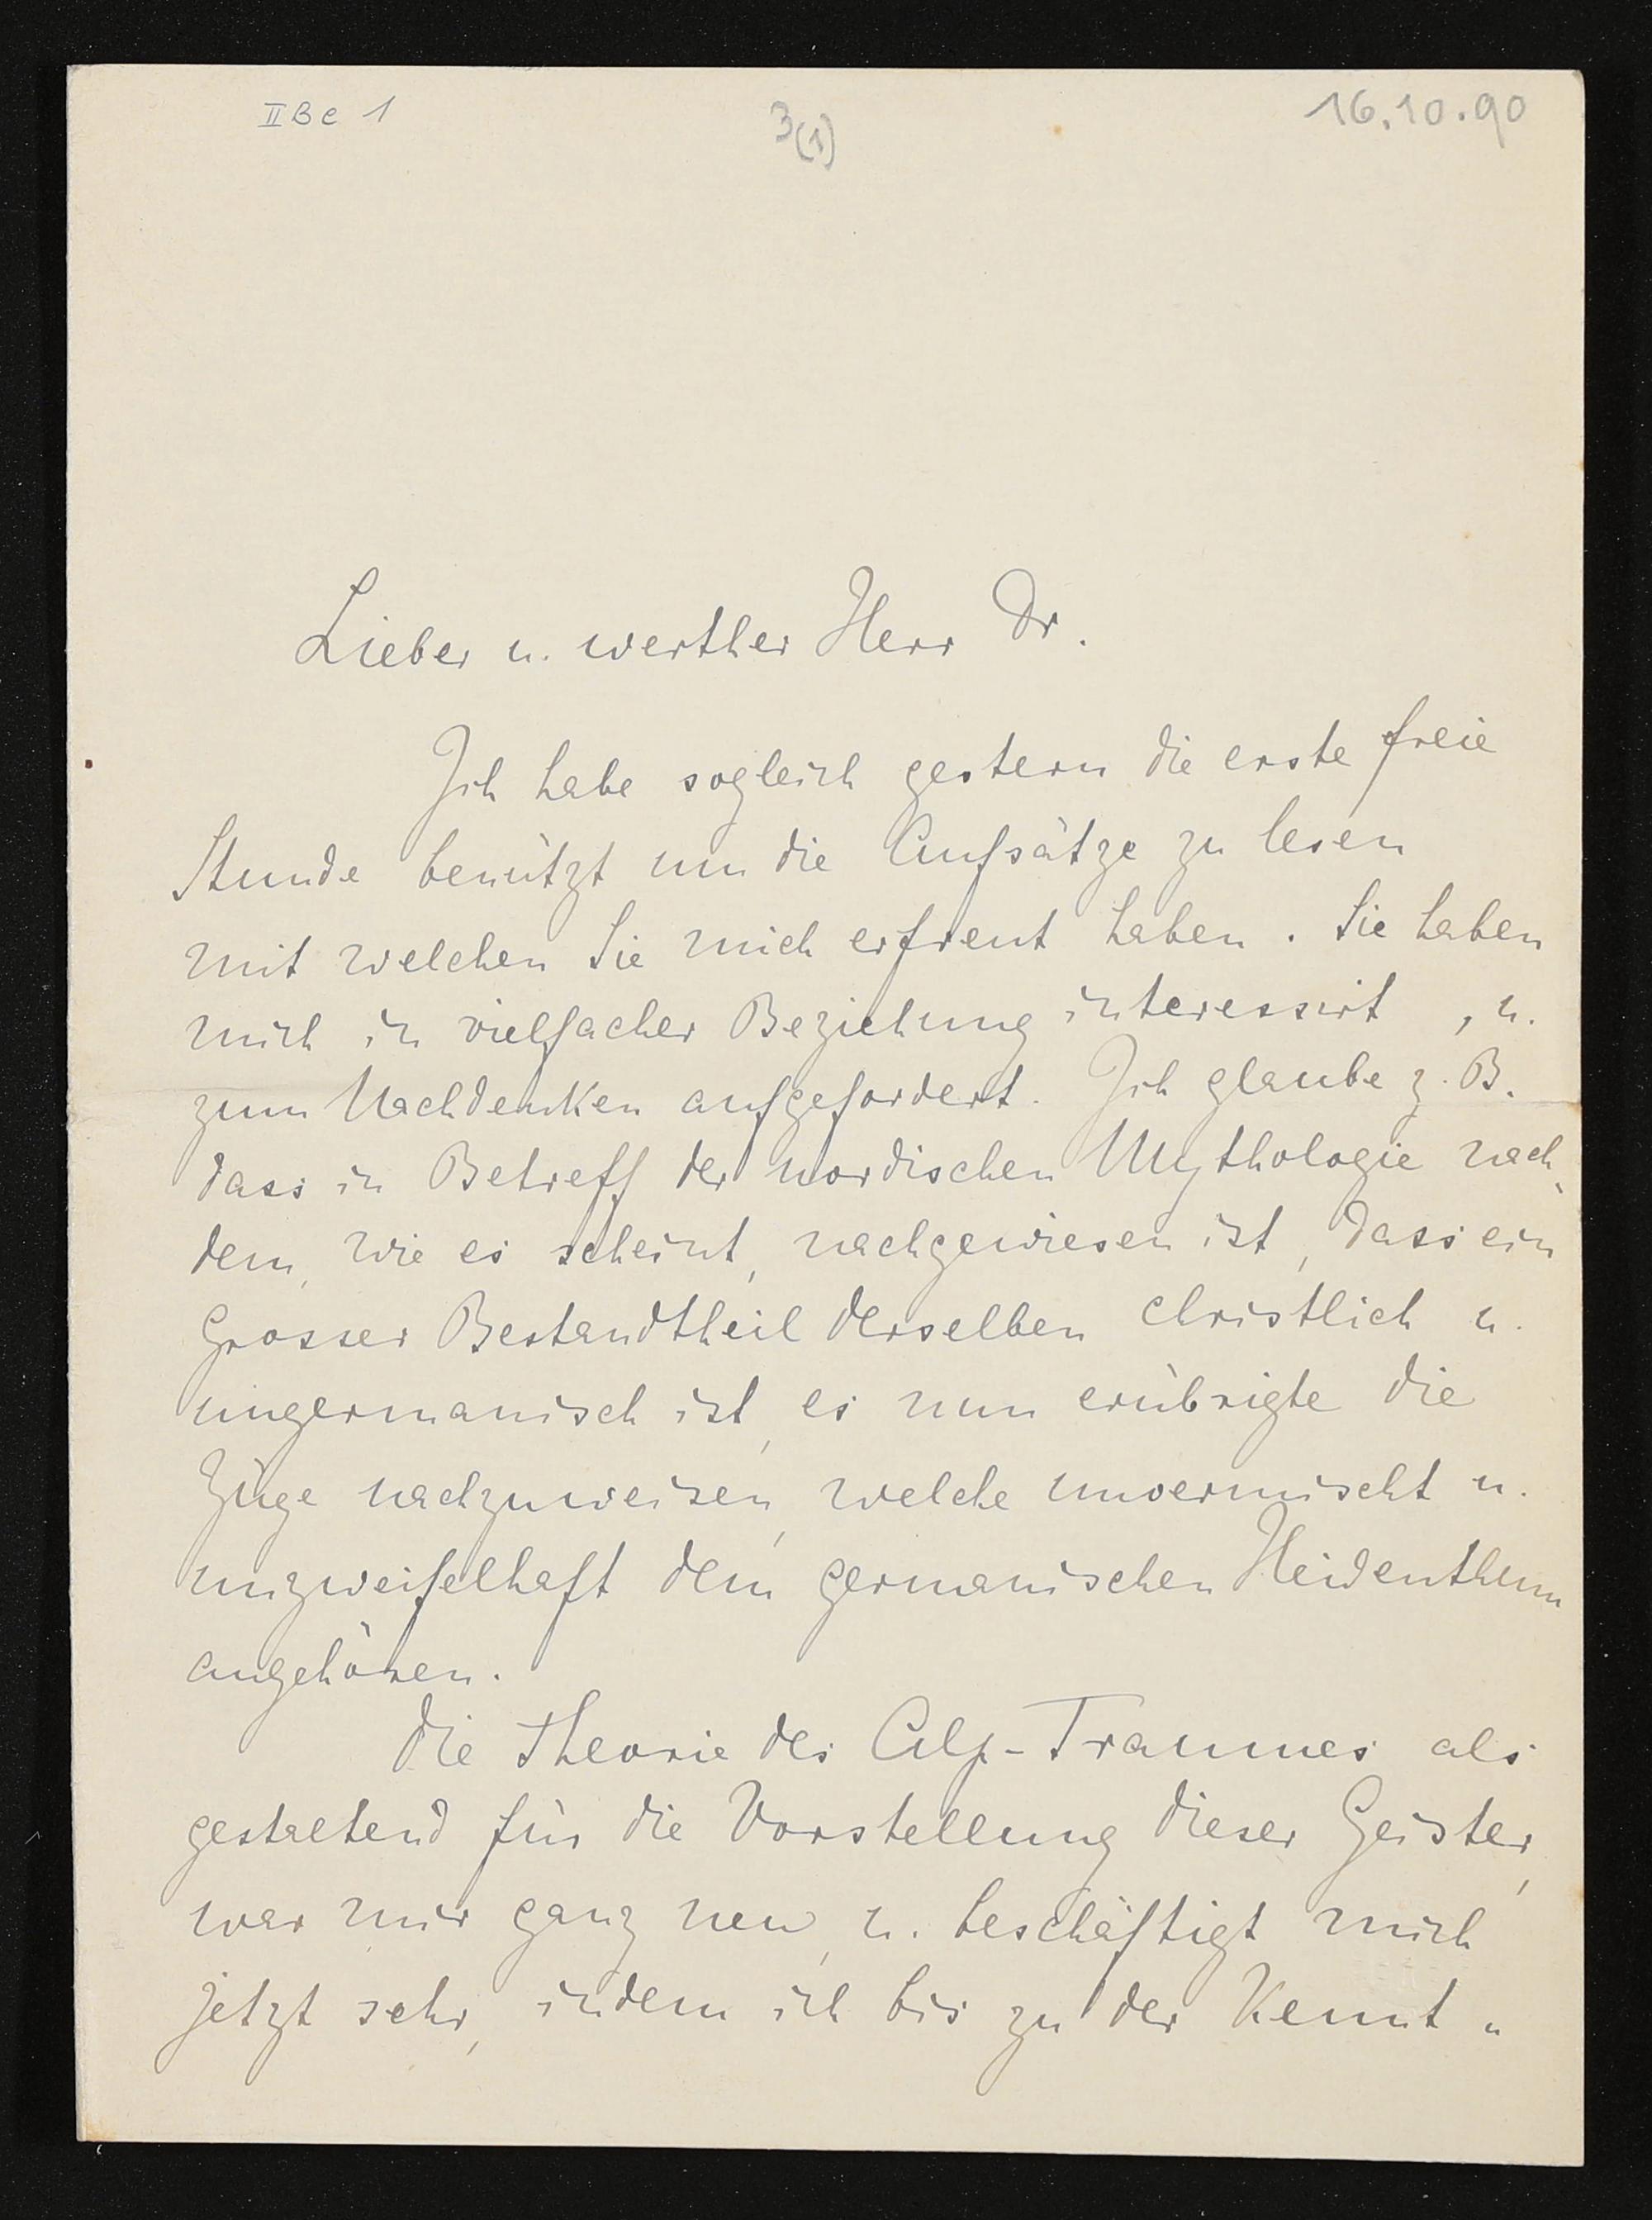 II B e 1
3(1)
16.10.90
Lieber u. werther Herr Dr.
Ich habe sogleich gestern die erste freie
Stunde benützt um die Aufsätze zu lesen
mit welchen Sie mich erfreut haben. Sie haben
mich in vielfacher Beziehung interessirt, u.
zum Nachdenken aufgefordert. Ich glaube z. B.
dass in Betreff der nordischen Mythologie nach-
dem, wie es scheint, nachgewiesen ist, dass ein
grosser Bestandtheil derselben christlich u.
ungermanisch ist, es nun erübrigte die
Züge nachzuweisen, welche unvermischt u.
unzweifelhaft dem germanischen Heidenthum
angehören.
Die Theorie des Alp-Traumes als
gestaltend für die Vorstellung dieser Geister,
war mir ganz neu, u. beschäftigt mich
jetzt sehr, indem ich bis zu der Kennt-